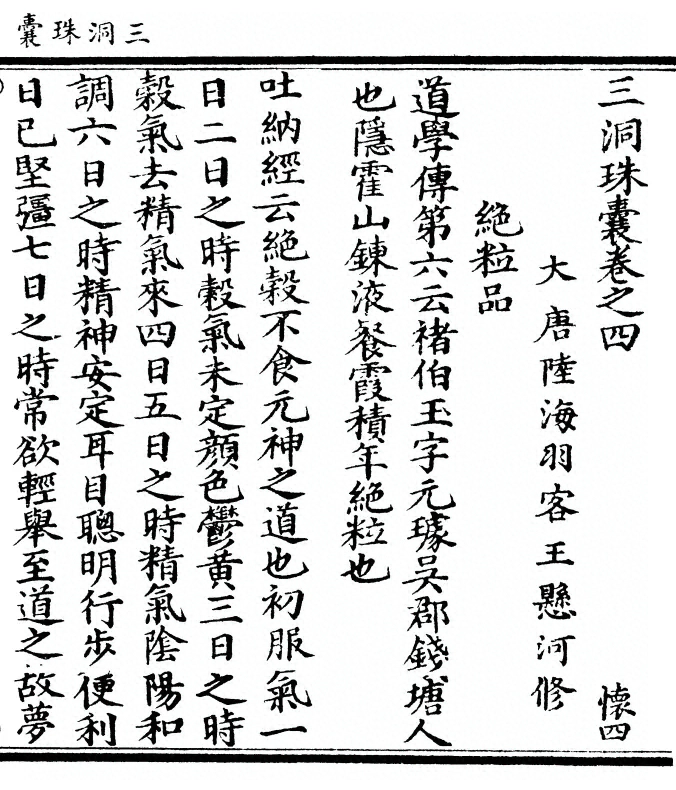 三洞珠囊
三洞珠囊卷之四 懷四
大唐陸海羽客王懸河修
絕粒品
道學傳第六云褚伯玉字元璩吳郡錢塘人
也隱霍山鍊液餐霞積年絕粒也
吐納經云絕穀不食元神之道也初服氣一
日二日之時穀氣未定顏色鬱黃三日之時
穀氣去精氣來四日五日之時精氣陰陽和
調六日之時精神安定耳目聰明行步便利
日已堅彊七日之時常欲輕舉至道之故夢